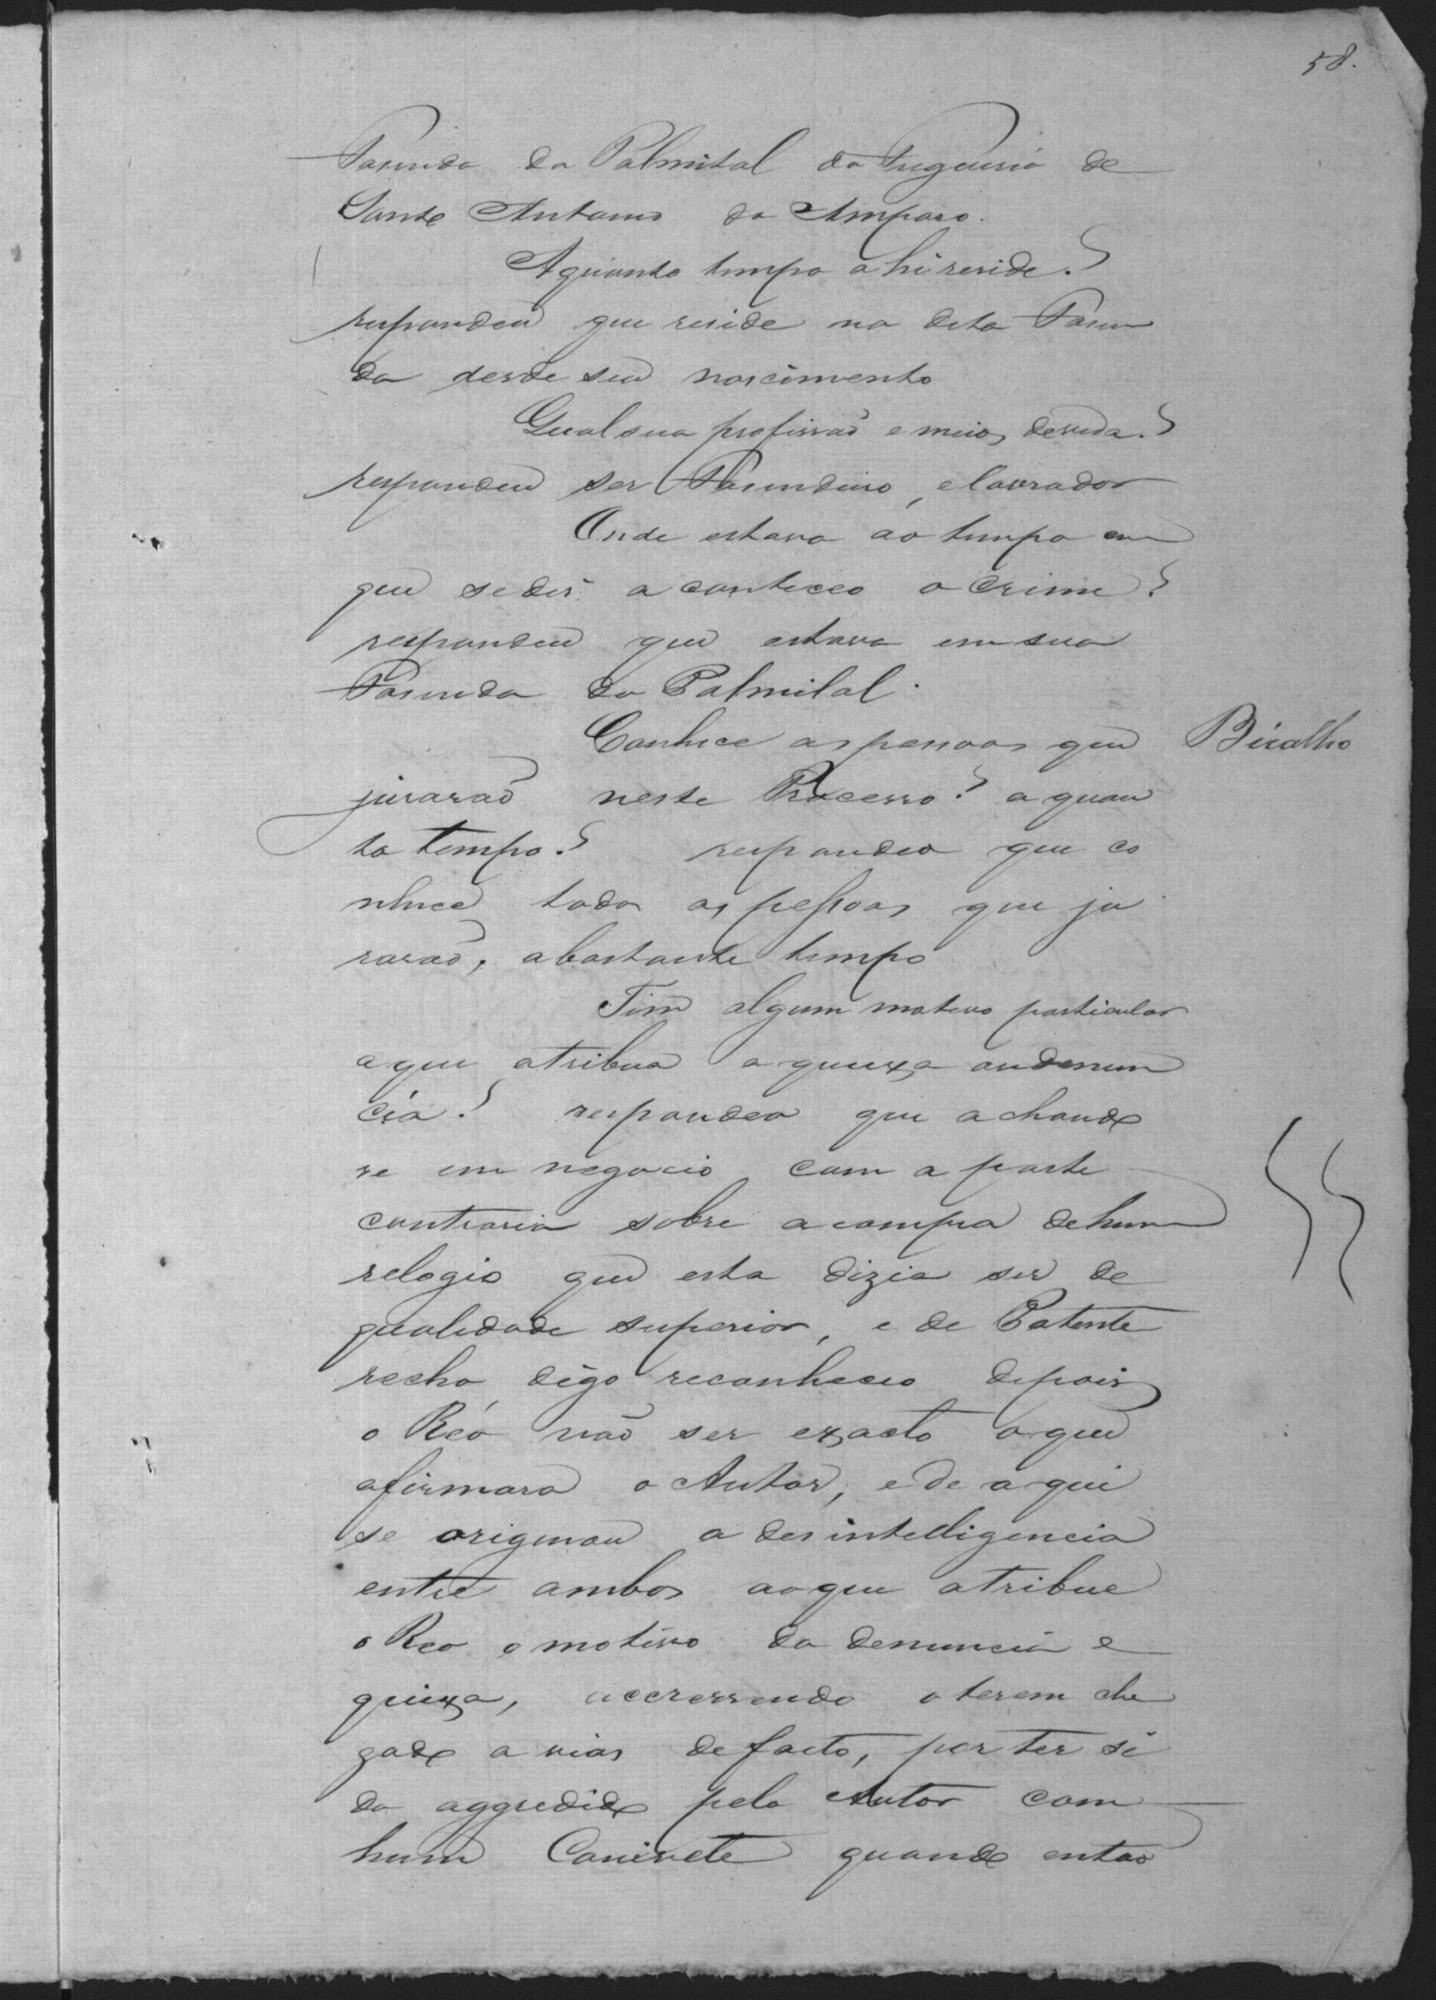 58.
Fasenda do Palmital da Freguesia de
Santo Antonio do Amparo.
Aquanto tempo ahi reside?
respondeu que reside na dita Fasen
da desde seu nascimento
Qual sua profissaõ e meios devida?
respondeu ser Fasendeiro, elavrador
Onde estava ao tempo em
que sediz aconteceo o crime?
respondeu que estava em sua
Fasenda do Palmital.
Conhece aspessoas que
Bicalho
juraraõ neste Processo? a quan
to tempo? respondeo que co
nhece todas as pessoas que ju
raraõ, abastante tempo
Tem algum motivo particular
aque atribua a queixa oudenun
cia? respondeo que achando
se em negocio com a parte
contraria sobre a compra dehum
relogio que esta dizia ser de
qualidade superior, e de Patente
recho digo reconheceo depois
o Réo naõ ser exacto oque
afirmara o Autor, e de aqui
se originou a desintelligencia
entre ambos aoque atribue
o Reo o motivo da denuncia e
queixa, accressendo oterem che
gado a vias defacto, por ter si
do aggredido pelo Autor com
hum Canivete quando entaõ